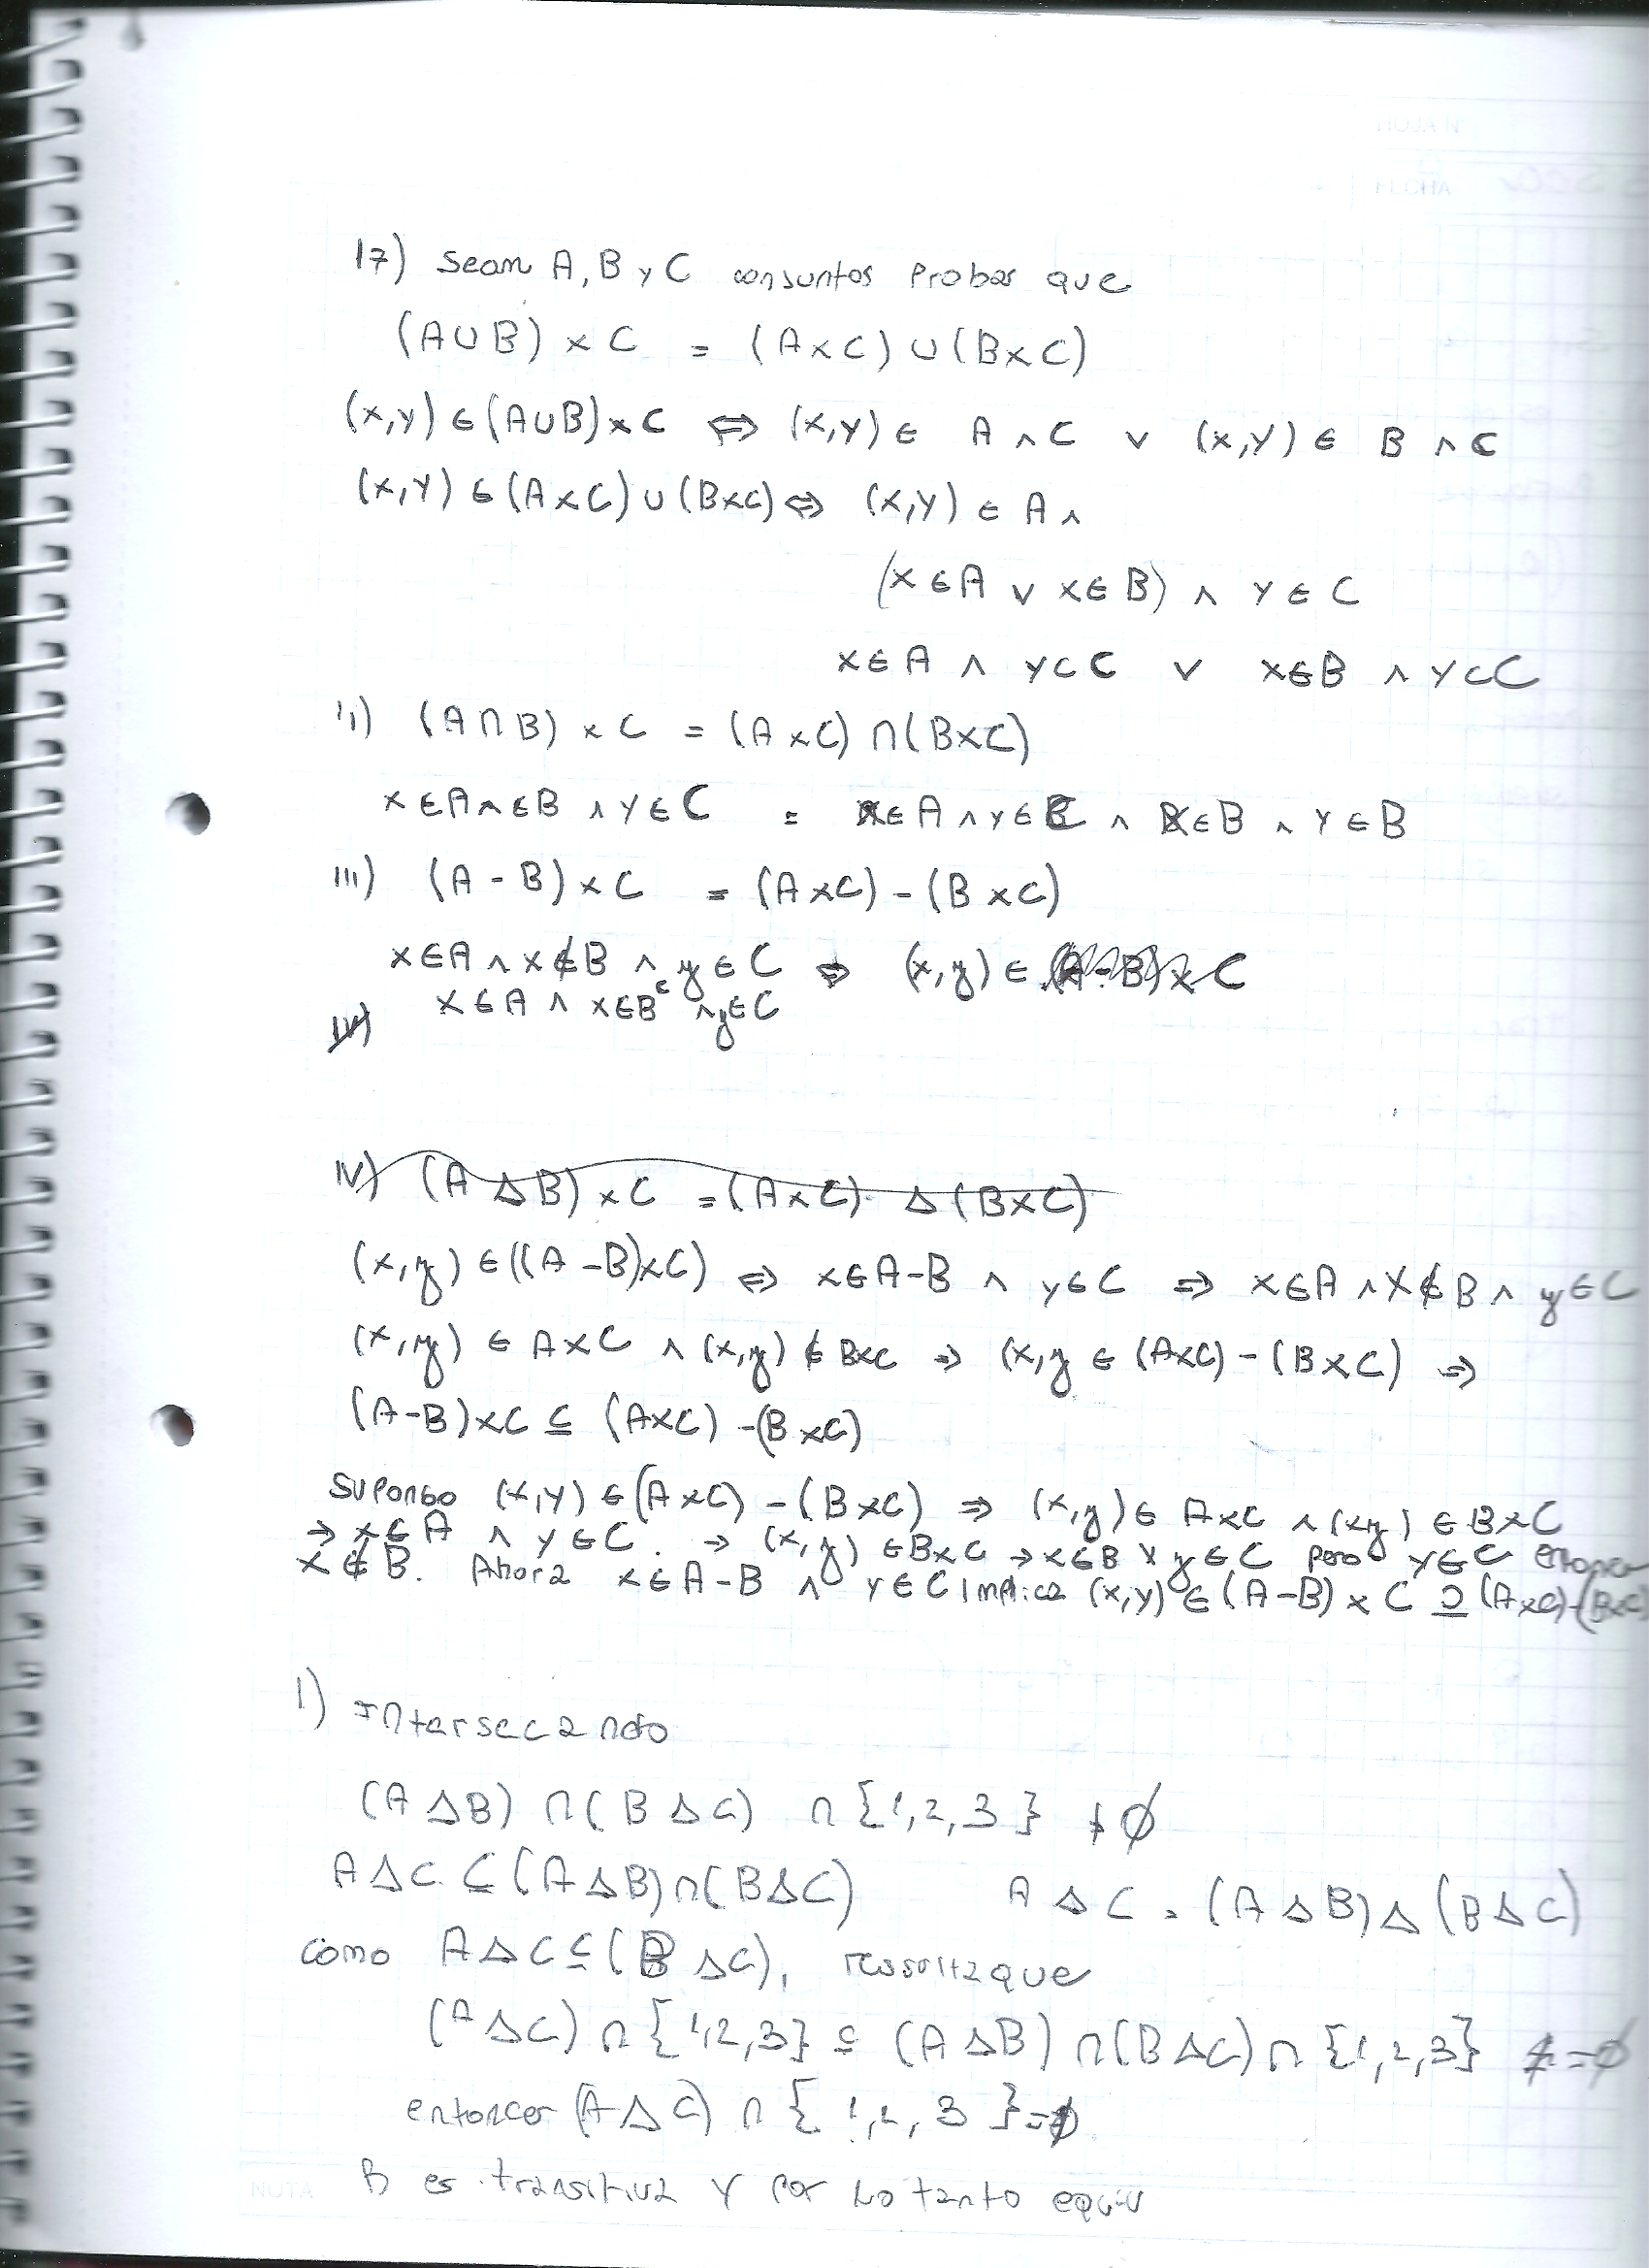 HOJA N
FECHA
17) Sean A, B y C conjuntos probar que
(A∪B) × C = (A×C) ∪ (B×C)
(x,y) ∈ (A∪B)×C ⇔ (x,y) ∈ A ∧ C ∨ (x,y) ∈ B ∧ C
(x,y) ∈ (A×C) ∪ (B×C) ⇔ (x,y) ∈ A ∧
(x ∈ A ∨ x ∈ B) ∧ y ∈ C
x ∈ A ∧ y ⊂ C ∨ x ∈ B ∧ y ⊂ C
ii) (A∩B) × C = (A×C) ∩ (B×C)
x ∈ A ∧ ∈ B ∧ y ∈ C = x ∈ A ∧ y ∈ C ∧ x ∈ B ∧ y ∈ B
iii) (A - B) × C = (A×C) - (B×C)
x ∈ A ∧ x ∉ B ∧ y ∈ C ⇒ (x,y) ∈ (A-B) × C
x ∈ A ∧ x ∈ Bᶜ ∧ y ∈ C
iv)
iv) (A Δ B) × C = (A×C) Δ (B×C)
(x,y) ∈ ((A-B)×C) ⇔ x ∈ A-B ∧ y ∈ C ⇒ x ∈ A ∧ x ∉ B ∧ y ∈ C
(x,y) ∈ A×C ∧ (x,y) ∉ B×C ⇒ (x,y ∈ (A×C) - (B×C) ⇒
(A-B)×C ⊆ (A×C) - (B×C)
Supongo (x,y) ∈ (A×C) - (B×C) ⇒ (x,y) ∈ A×C ∧ (x,y) ∈ B×C
⇒ x ∈ A ∧ y ∈ C. → (x,y) ∈ B×C → x ∈ B y y ∈ C pero y ∈ C entonces
x ∉ B. Ahora x ∈ A-B ∧ y ∈ C implica (x,y) ∈ (A-B) × C ⊇ (A×C)-(B×C)
1) Intersecando
(A Δ B) ∩ (B Δ C) ∩ {1,2,3} ≠ ∅
A Δ C ⊆ (A Δ B) ∩ (B Δ C) A Δ C = (A Δ B) Δ (B Δ C)
como A Δ C ⊆ (B Δ C), resulta que
(A Δ C) ∩ {1,2,3} ⊆ (A Δ B) ∩ (B Δ C) ∩ {1,2,3} ≠ = ∅
entonces (A Δ C) ∩ {1,2,3} = ∅
B es transitiva y por lo tanto equiv
NOTA